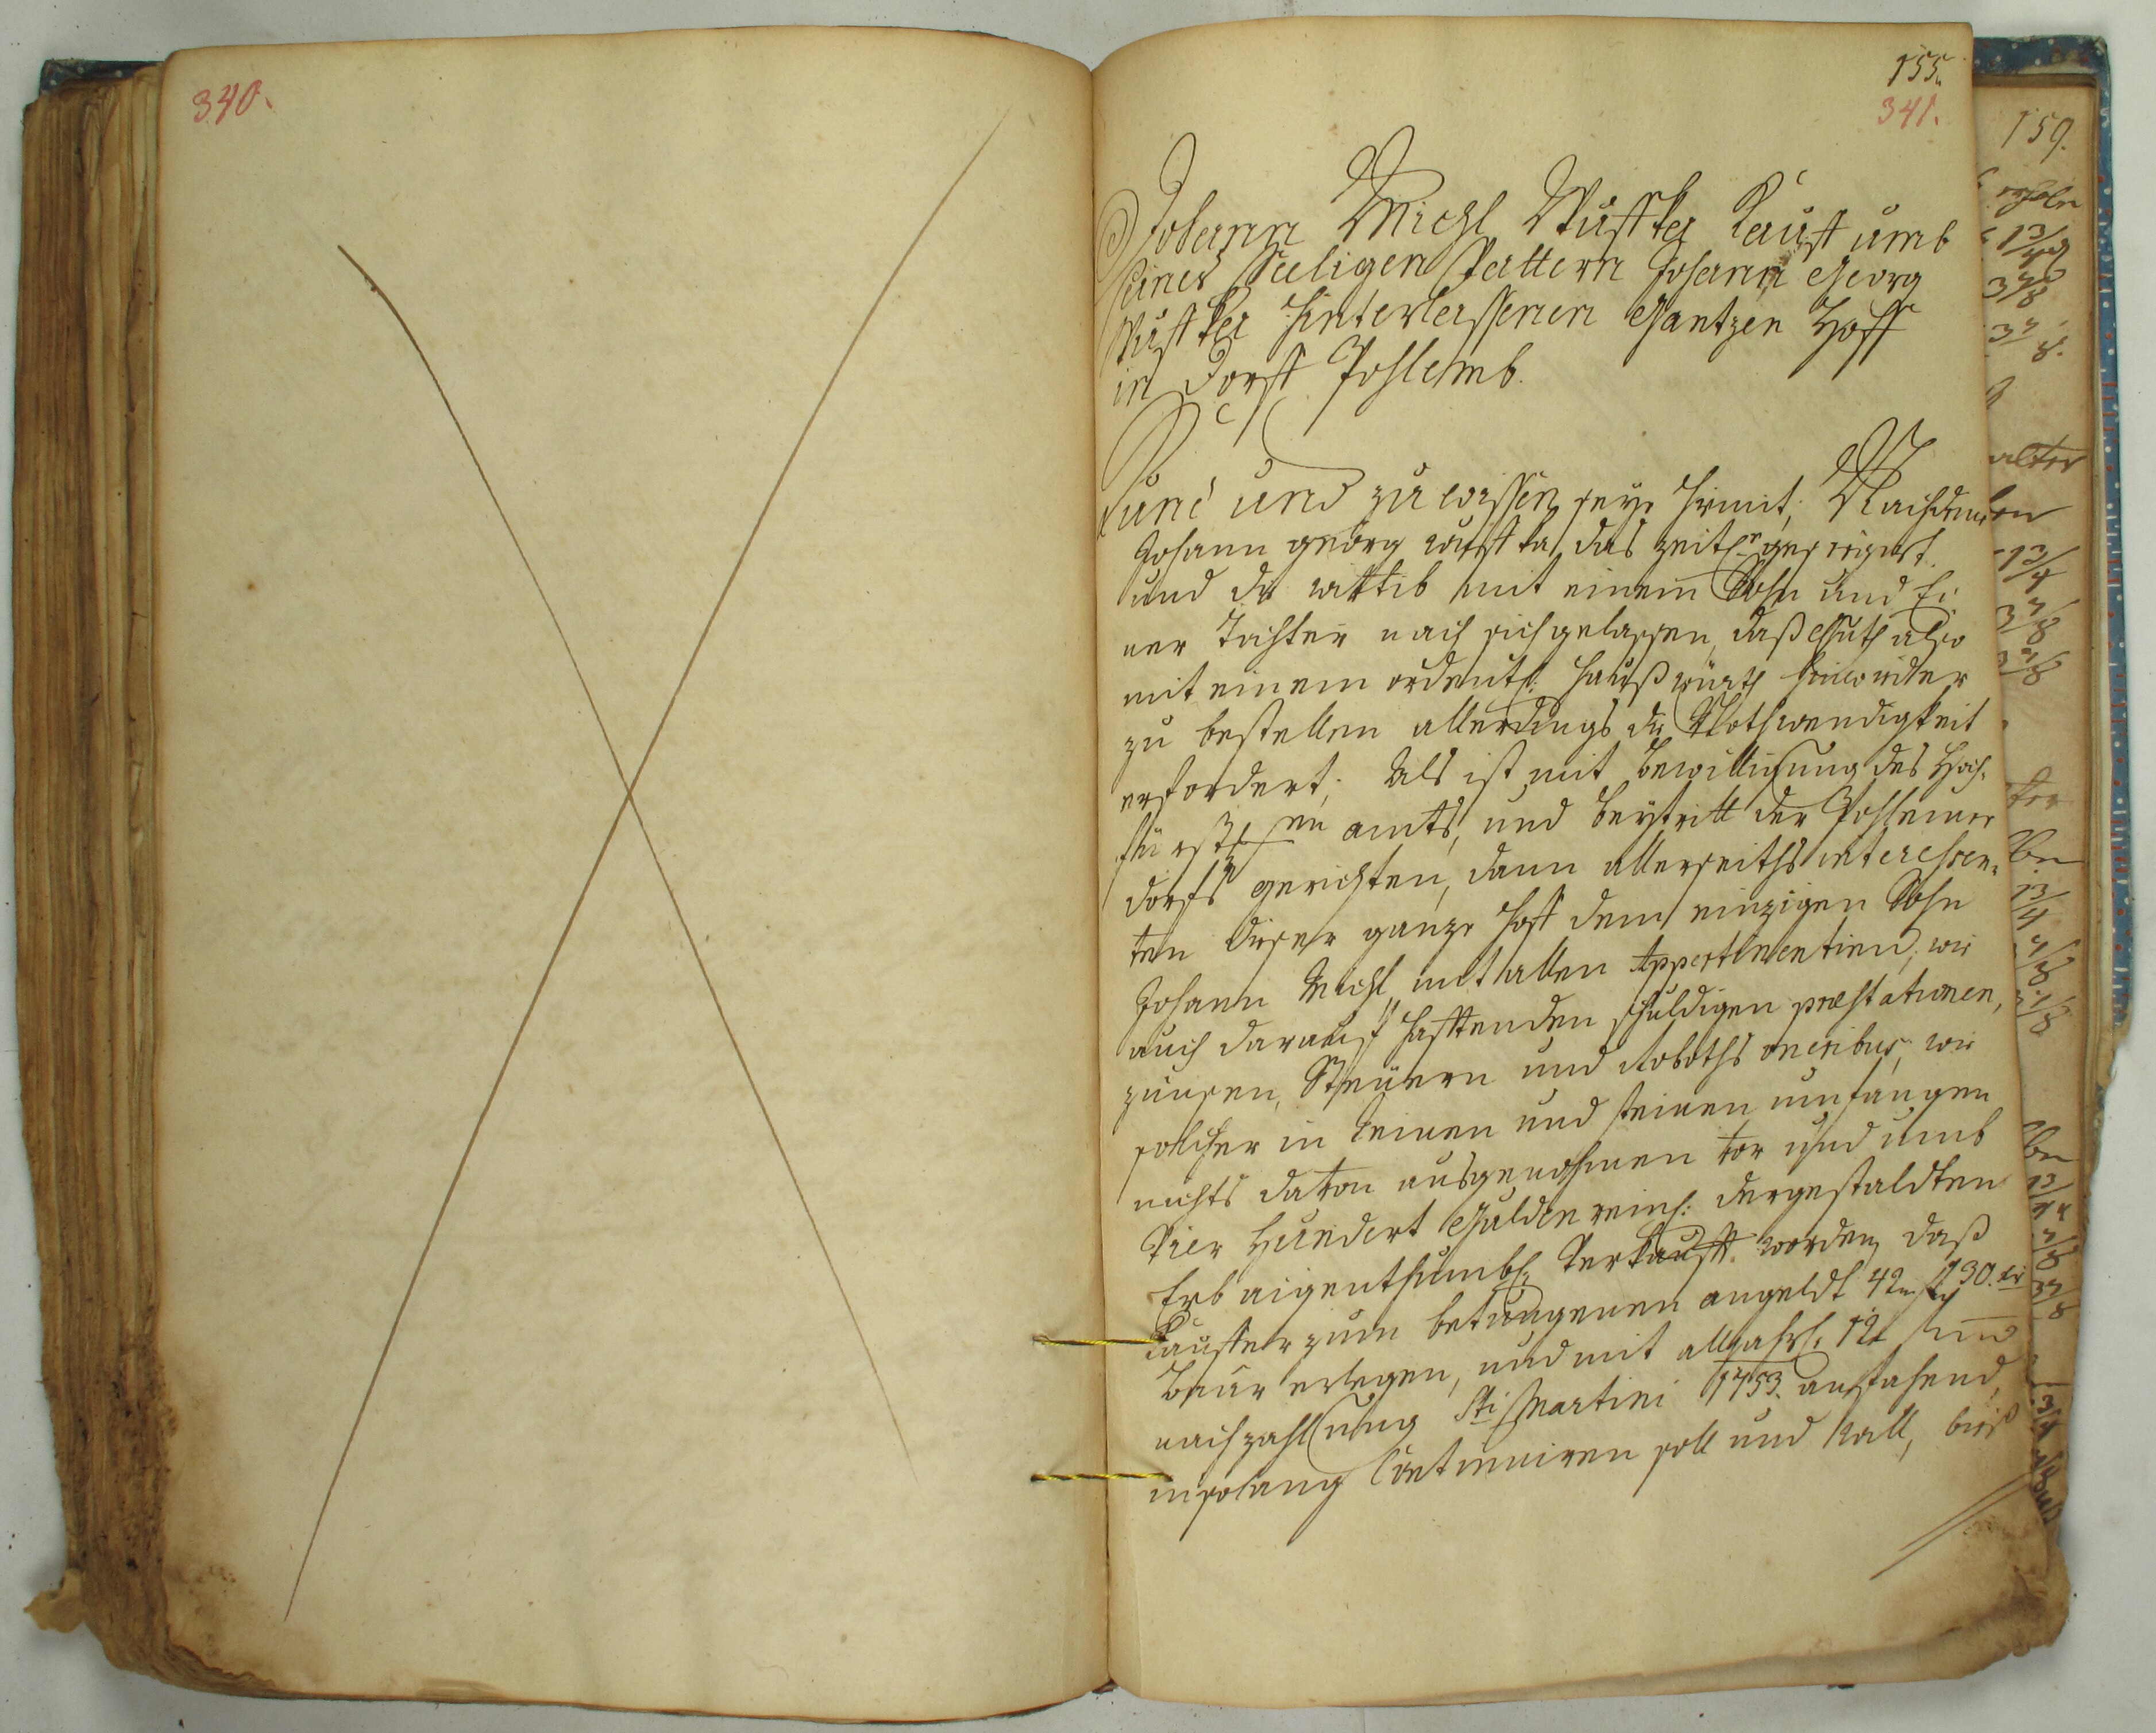 340.
155.
341.
Johann Michl Wustka Kaufft umb
seines Seeligen Vattern Johann Georg
Wustka Hinterlassenen Gantzen Hoff
in Dorff Pohlemb.
Kund und zu wissen seye hiemit; Nachdeme
Johann georg wustka das zeitl: gesegnet
und die wittib mit einem Sohn und Ei-
ner Tochter nach sich gelassen, daß Guth also
mit einem ordentl: Haußwürth hinwider
zu bestellen allerdings die Nothwendigkeit
erfordert; Als ist mit Bewilligung des Hoch-
fürstlichen amts, und Beytritt der Pohlemer
dorfs gerichten, dann allerseiths interessen-
ten dieser ganze Hoff dem einzigen Sohn
Johann Michl, mit allen Appertinentien, wie
auch darauf hafftenden schuldigen præstationen,
zünsen, Steüern und Roboths oneribus, wie
solcher in Reinen und Steinen umfangen
nichts davon ausgenohmen vor und umb
Vier Hundert Gulden reinl: dergestaldten
Erb aigenthumbl: verkaufft worden, daß
Käuffer zum betungenen angeldt 42 f 30. kr
Baar erlegen, und mit alljahrl: 12 f
nachzahlung Sti Martini 1753. anfahend,
insolang Continuiren soll und wull, bieß
159.
alter
13/4